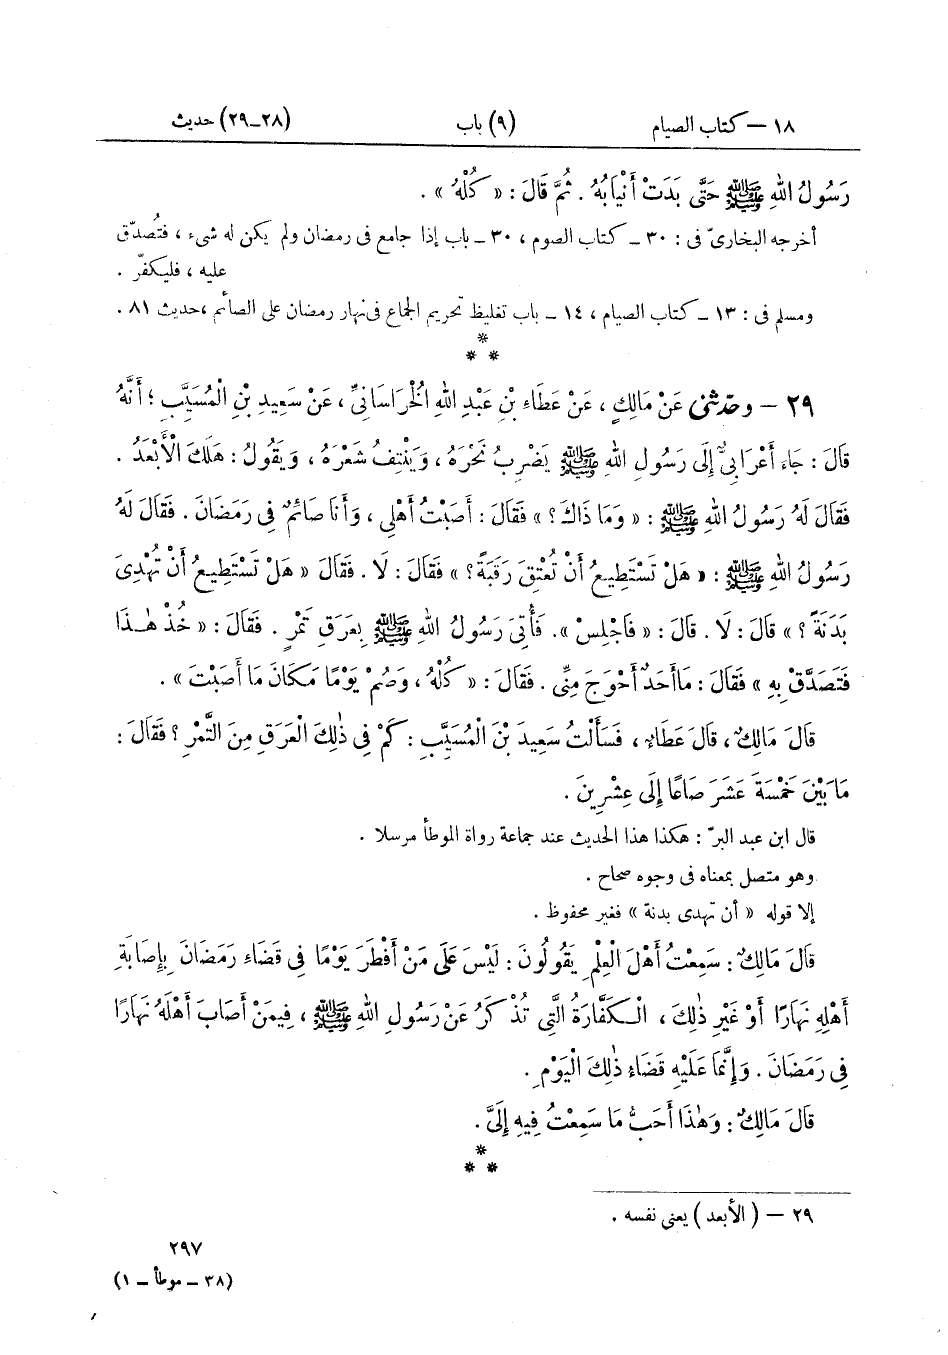 ١٨ – كتاب الصيام (٩) باب (٢٨–٢٩) حديث
رَسُولُ اللهِ ﷺ حَتَّى بَدَتْ أَنْيَابُهُ . ثُمَّ قَالَ : « كُلْهُ » .
أخرجه البخارىّ فى : ٣٠ – كتاب الصوم ، ٣٠ – باب إذا جامع فى رمضان ولم يكن له شىء ، فتُصدّق
عليه ، فليكفّر .
ومسلم فى : ١٣ – كتاب الصيام ، ١٤ – باب تغليظ تحريم الجماع فى نهار رمضان على الصائم ، حديث ٨١ .
*
* *
٢٩ – وحدّثنى عَنْ مَالِكٍ ، عَنْ عَطَاءِ بْنِ عَبْدِ اللهِ الْخُرَاسَانِىِّ ، عَنْ سَعِيدِ بْنِ الْمُسَيَّبِ ؛ أَنَّهُ
قَالَ : جَاءَ أَعْرَابِىٌّ إِلَى رَسُولِ اللهِ ﷺ يَضْرِبُ نَحْرَهُ ، وَيَنْتِفُ شَعْرَهُ ، وَيَقُولُ : هَلَكَ الْأَبْعَدُ .
فَقَالَ لَهُ رَسُولُ اللهِ ﷺ : « وَمَا ذَاكَ ؟ » فَقَالَ : أَصَبْتُ أَهْلِى ، وَأَنَا صَائِمٌ فِى رَمَضَانَ . فَقَالَ لَهُ
رَسُولُ اللهِ ﷺ : « هَلْ تَسْتَطِيعُ أَنْ تُعْتِقَ رَقَبَةً ؟ » فَقَالَ : لَا . فَقَالَ « هَلْ تَسْتَطِيعُ أَنْ تُهْدِىَ
بَدَنَةً ؟ » قَالَ : لَا . قَالَ : « فَاجْلِسْ » . فَأُتِىَ رَسُولُ اللهِ ﷺ بِعَرَقِ تَمْرٍ . فَقَالَ : « خُذْ هٰذَا
فَتَصَدَّقْ بِهِ » فَقَالَ : مَا أَحَدٌ أَحْوَجَ مِنِّى . فَقَالَ : « كُلْهُ ، وَصُمْ يَوْمًا مَكَانَ مَا أَصَبْتَ » .
قَالَ مَالِكٌ ، قَالَ عَطَاءٌ ، فَسَأَلْتُ سَعِيدَ بْنَ الْمُسَيَّبِ : كَمْ فِى ذٰلِكَ الْعَرَقِ مِنَ التَّمْرِ ؟ فَقَالَ :
مَا بَيْنَ خَمْسَةَ عَشَرَ صَاعًا إِلَى عِشْرِينَ .
قال ابن عبد البرّ : هكذا هذا الحديث عند جماعة رواة الموطأ مرسلا .
وهو متصل بمعناه فى وجوه صحاح .
إلا قوله « أن تهدى بدنة » فغير محفوظ .
قَالَ مَالِكٌ : سَمِعْتُ أَهْلَ الْعِلْمِ يَقُولُونَ : لَيْسَ عَلَى مَنْ أَفْطَرَ يَوْمًا فِى قَضَاءِ رَمَضَانَ بِإِصَابَةِ
أَهْلِهِ نَهَارًا أَوْ غَيْرِ ذٰلِكَ ، الْكَفَّارَةُ الَّتِى تُذْكَرُ عَنْ رَسُولِ اللهِ ﷺ ، فِيمَنْ أَصَابَ أَهْلَهُ نَهَارًا
فِى رَمَضَانَ . وَإِنَّمَا عَلَيْهِ قَضَاءُ ذٰلِكَ الْيَوْمِ .
قَالَ مَالِكٌ : وَهٰذَا أَحَبُّ مَا سَمِعْتُ فِيهِ إِلَىَّ .
*
* *
٢٩ – ( الأبعد ) يعنى نفسه .
٢٩٧
(٣٨ – موطأ – ١)